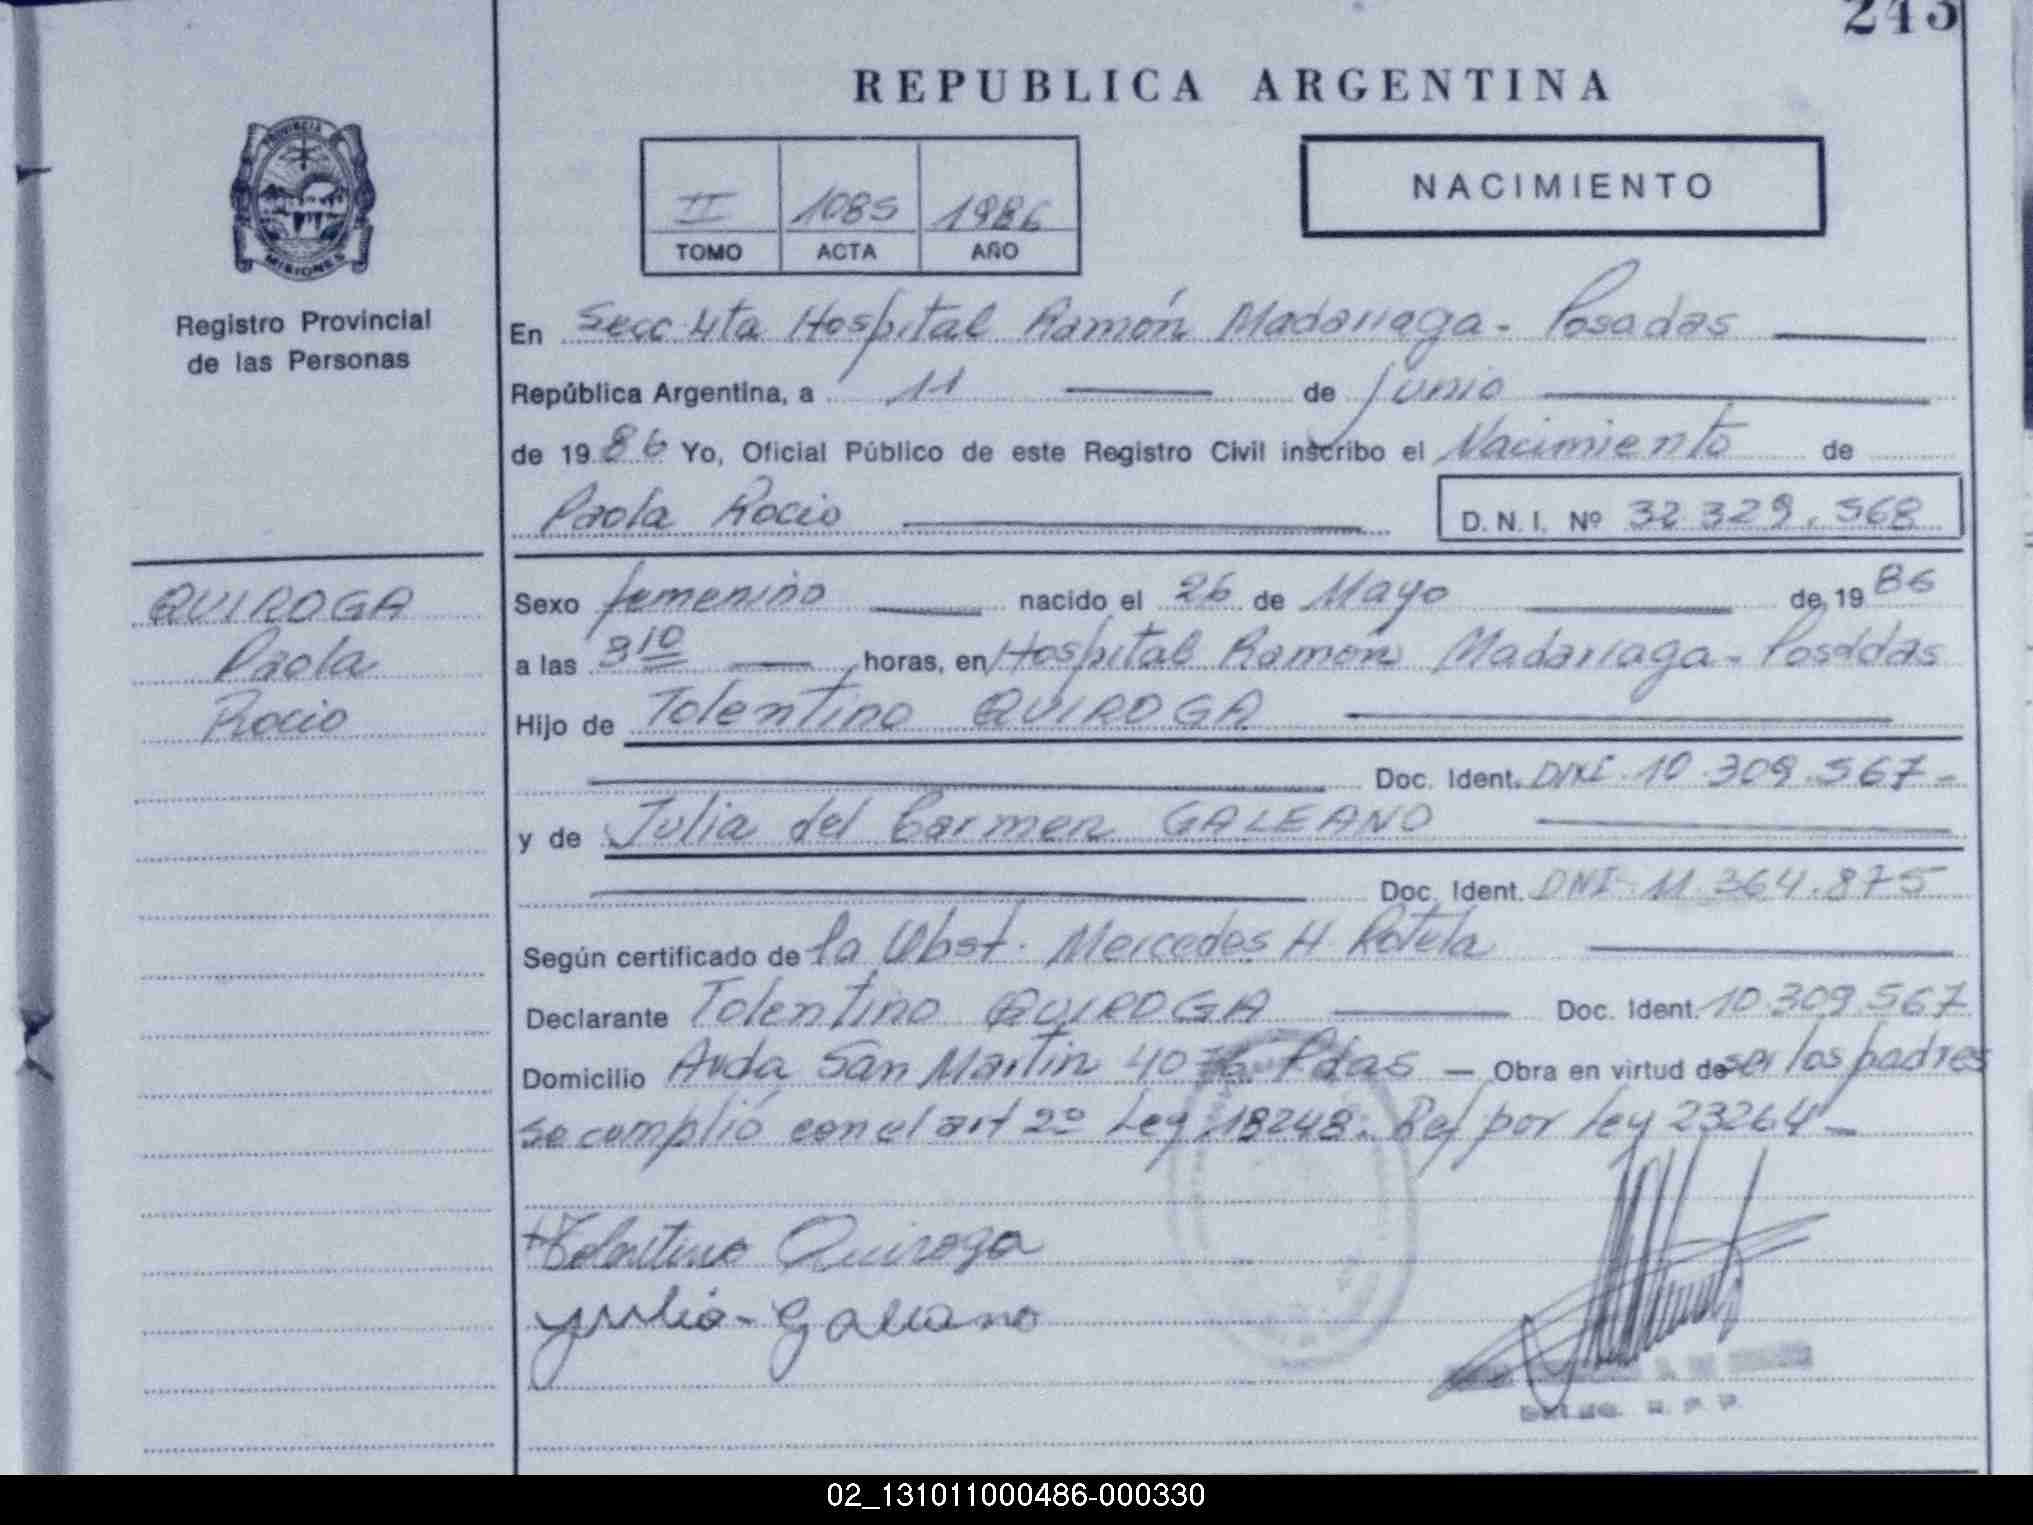 243
REPUBLICA ARGENTINA
PROVINCIA
MISIONES
Registro Provincial
de las Personas
II 1085 1986
TOMO ACTA AÑO
NACIMIENTO
En Secc 4ta Hospital Ramón Madariaga - Posadas
República Argentina, a 11 de junio
de 1986 Yo, Oficial Público de este Registro Civil inscribo el Nacimiento de
Paola Rocio D.N.I. Nº 32.329.568
QUIROGA
Paola
Rocio
Sexo femenino nacido el 26 de Mayo de 1986
a las 3 10 horas, en Hospital Ramón Madariaga - Posadas
Hijo de Tolentino QUIROGA
Doc. Ident. DNI. 10.309.567-
y de Julia del Carmen GALEANO
Doc. Ident. DNI 11.364.875
Según certificado de la Obst. Mercedes H. Rotela
Declarante Tolentino QUIROGA Doc. Ident. 10.309.567
Domicilio Avda San Martin Pdas — Obra en virtud de ser los padres
se cumplió con el art 2º Ley 18248. Ref por ley 23264 -
Tolentino Quiroga
Julia - Galeano
02_131011000486-000330